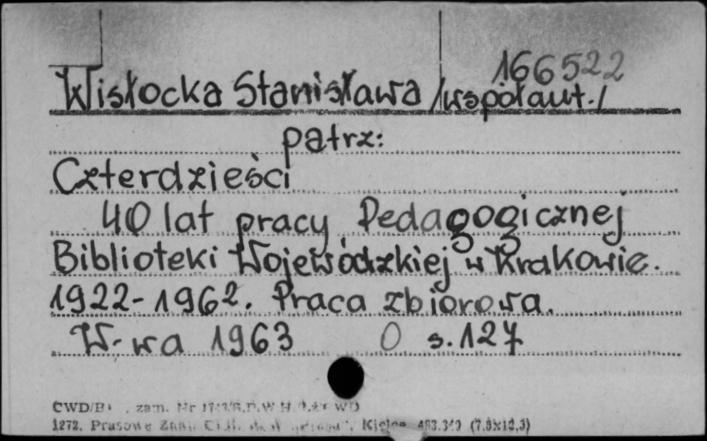 166522
Wisłocka Stanisława /współaut./
patrz:
Czterdzieści
40 lat pracy Pedagogicznej
Biblioteki Wojewódzkiej w Krakowie.
1922-1962. Praca zbiorowa.
W-wa 1963 O s. 127
CWD/B zam. Nr
1272. Prasowe Zakł. Kielce (7,8x12,3)